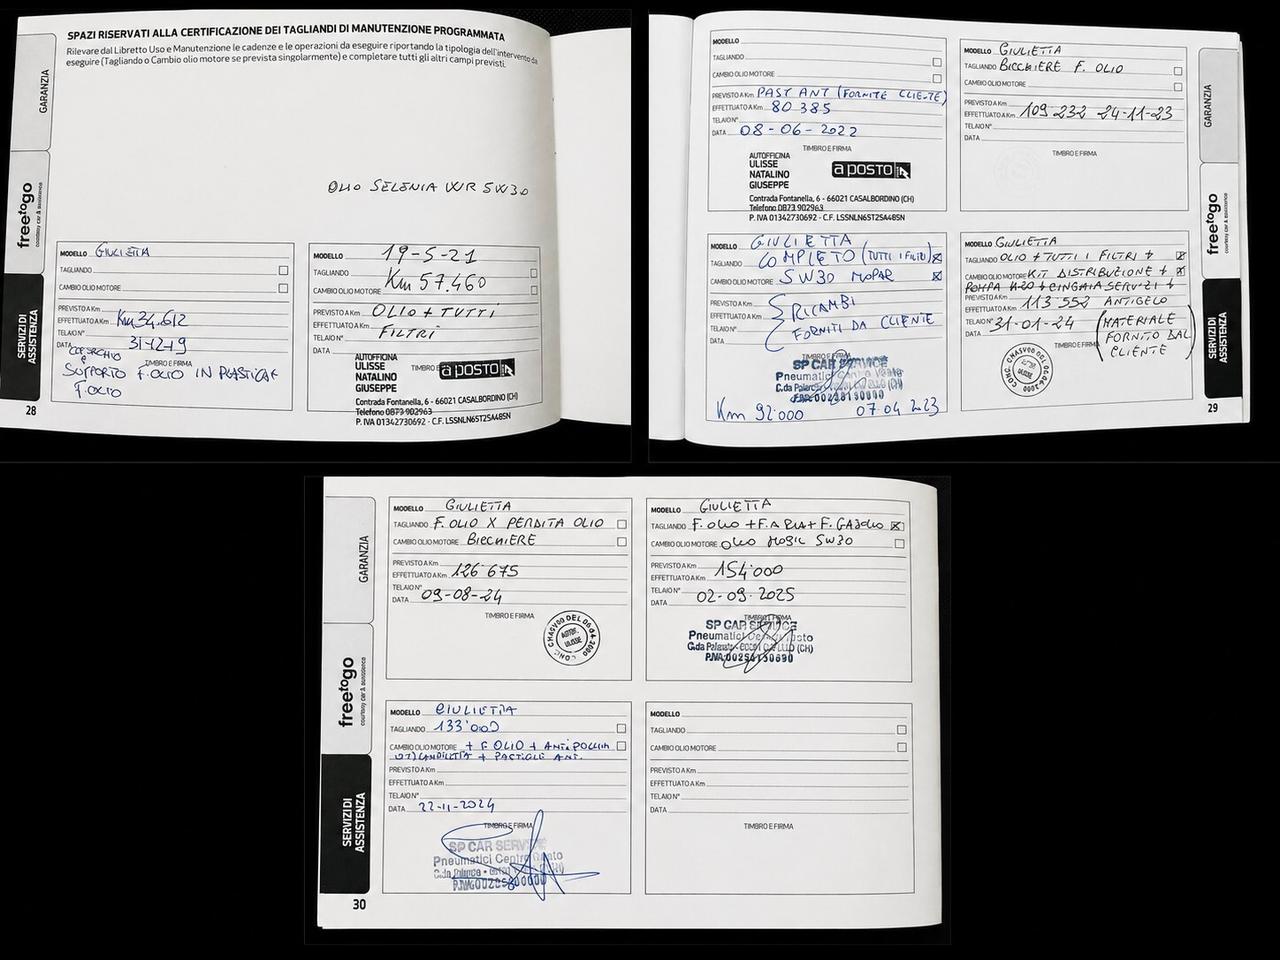 SPAZI RISERVATI ALLA CERTIFICAZIONE DEI TAGLIANDI DI MANUTENZIONE PROGRAMMATA
Rilevare dal Libretto Uso e Manutenzione le cadenze e le operazioni da eseguire riportando la tipologia dell'intervento da
eseguire (Tagliando o Cambio olio motore se prevista singolarmente) e completare tutti gli altri campi previsti.
GARANZIA
freetogo
courtesy car & assistance
SERVIZI DI
ASSISTENZA
OLIO SELENIA WR 5W30
MODELLO GIULIETTA
TAGLIANDO
CAMBIO OLIO MOTORE
PREVISTO A Km
EFFETTUATO A Km Km 34.612
TELAIO N°
DATA 31-12-19
COPERCHIO
TIMBRO E FIRMA
SUPPORTO F.OLIO IN PLASTICA
F.OLIO
28
MODELLO 19-5-21
TAGLIANDO
CAMBIO OLIO MOTORE Km 57.460
PREVISTO A Km
EFFETTUATO A Km OLIO + TUTTI
TELAIO N° FILTRI
DATA
AUTOFFICINA
ULISSE
NATALINO
GIUSEPPE
a POSTO
Contrada Fontanella, 6 - 66021 CASALBORDINO (CH)
Telefono 0873 902963
P. IVA 01342730692 - C.F. LSSNLN65T25A485N
MODELLO
TAGLIANDO
CAMBIO OLIO MOTORE
PREVISTO A Km PAST ANT (FORNITE CLIENTE)
EFFETTUATO A Km 80 385
TELAIO N°
DATA 08-06-2022
TIMBRO E FIRMA
AUTOFFICINA
ULISSE
NATALINO
GIUSEPPE
a POSTO
Contrada Fontanella, 6 - 66021 CASALBORDINO (CH)
Telefono 0873 902963
P. IVA 01342730692 - C.F. LSSNLN65T25A485N
MODELLO GIULIETTA
TAGLIANDO BICCHIERE F. OLIO
CAMBIO OLIO MOTORE
PREVISTO A Km
EFFETTUATO A Km 109 232 24-11-23
TELAIO N°
DATA
TIMBRO E FIRMA
MODELLO GIULIETTA
TAGLIANDO COMPLETO (TUTTI I FILTRI)
CAMBIO OLIO MOTORE 5W30 MOPAR
PREVISTO A Km RICAMBI
EFFETTUATO A Km
TELAIO N° FORNITI DA CLIENTE
DATA
TIMBRO E FIRMA
SP CAR SERVICE
Km 92'000 07.04.2023
MODELLO GIULIETTA
TAGLIANDO OLIO + TUTTI I FILTRI +
CAMBIO OLIO MOTORE KIT DISTRIBUZIONE +
POMPA H20 + CINGHIA SERVIZI +
PREVISTO A Km
EFFETTUATO A Km 113 552 ANTIGELO
TELAIO N° 31-01-24 (MATERIALE
DATA
TIMBRO E FIRMA FORNITO DAL
CLIENTE)
GARANZIA
freetogo
courtesy car & assistance
SERVIZI DI
ASSISTENZA
29
GARANZIA
freetogo
courtesy car & assistance
SERVIZI DI
ASSISTENZA
MODELLO GIULIETTA
TAGLIANDO F. OLIO X PERDITA OLIO
CAMBIO OLIO MOTORE BICCHIERE
PREVISTO A Km
EFFETTUATO A Km 126 675
TELAIO N°
DATA 09-08-24
TIMBRO E FIRMA
MODELLO GIULIETTA
TAGLIANDO F. OLIO + F. ARIA + F. GASOLIO
CAMBIO OLIO MOTORE OLIO MOBIL 5W30
PREVISTO A Km
EFFETTUATO A Km 154'000
TELAIO N°
DATA 02-09-2025
TIMBRO E FIRMA
SP CAR SERVICE
MODELLO GIULIETTA
TAGLIANDO 133'000
CAMBIO OLIO MOTORE + F. OLIO + ANTIPOLLINE
CANDILETTA + PASTIGLIE ANT.
PREVISTO A Km
EFFETTUATO A Km
TELAIO N°
DATA 22-11-2024
TIMBRO E FIRMA
SP CAR SERVICE
MODELLO
TAGLIANDO
CAMBIO OLIO MOTORE
PREVISTO A Km
EFFETTUATO A Km
TELAIO N°
DATA
TIMBRO E FIRMA
30